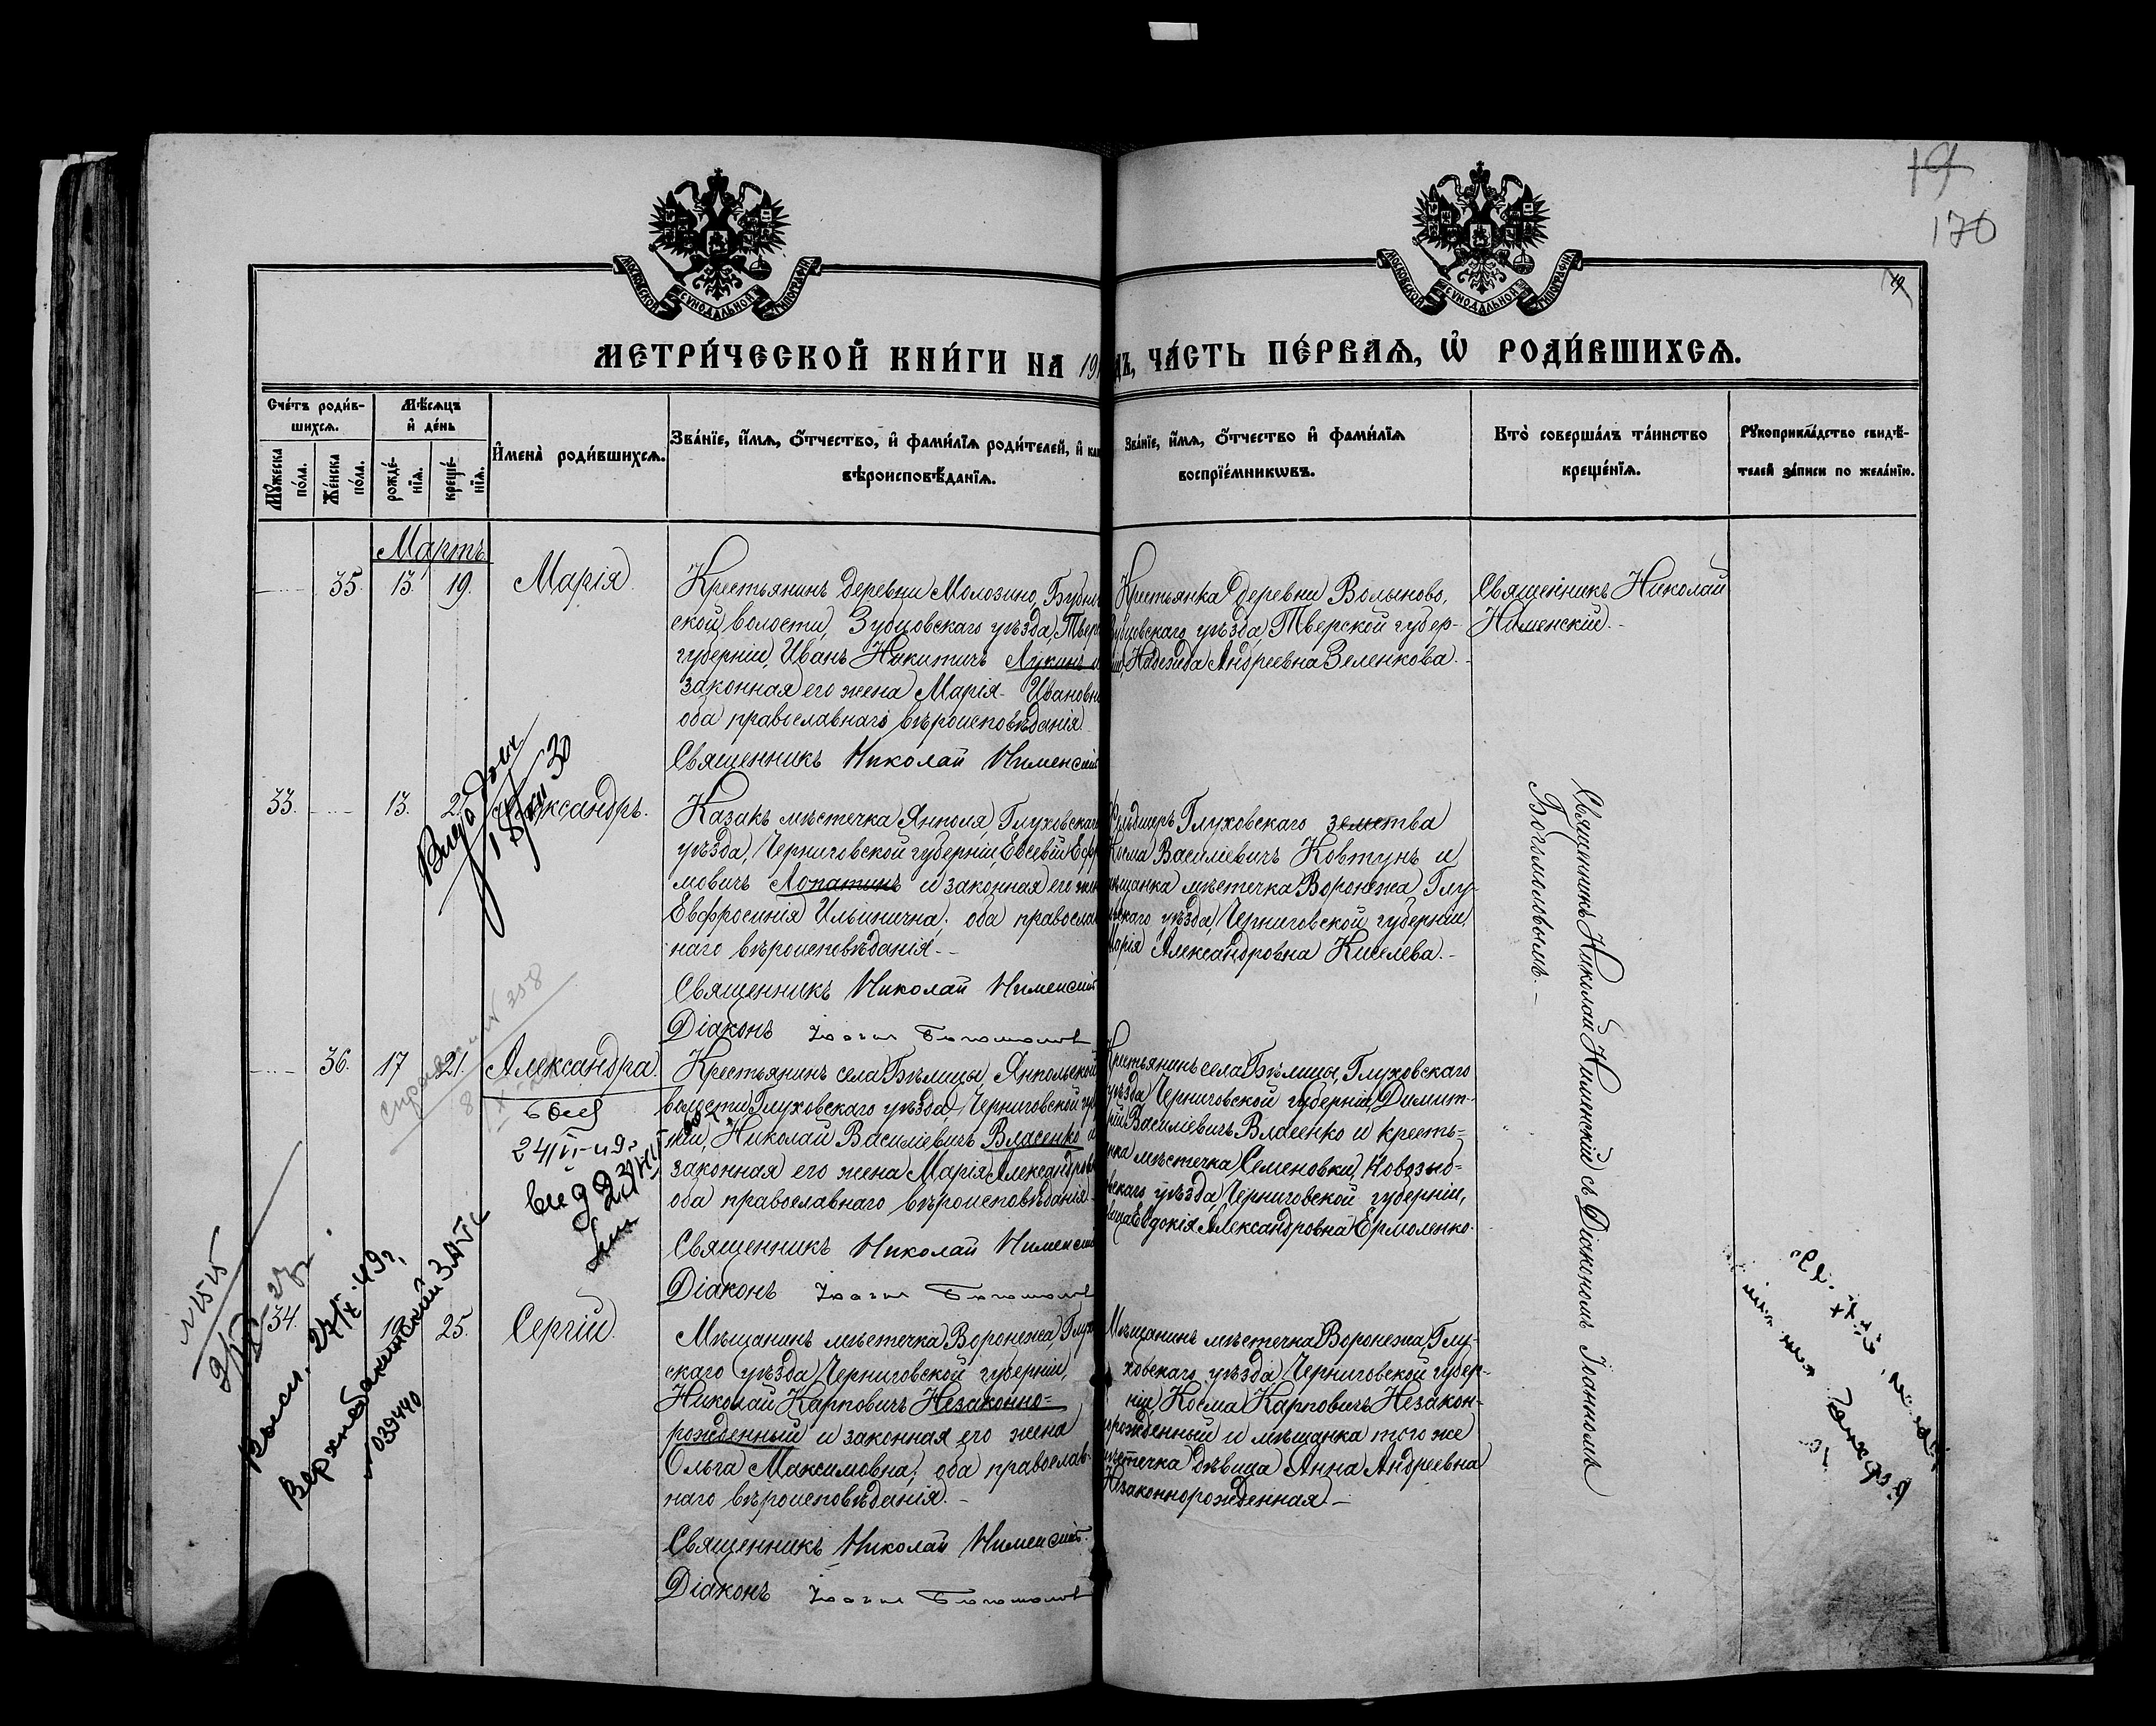 19
170
19
МОСКОВСКОЙ СѴНОДАЛЬНОЙ ТИПОГРАФІИ
МОСКОВСКОЙ СѴНОДАЛЬНОЙ ТИПОГРАФІИ
МЕТРИ́ЧЕСКОЙ КНИ́ГИ НА 19
ДЪ, ЧА́СТЬ ПЕ́РВАѦ, Ѡ҆ РОДИ́ВШИХСѦ.
Сче́тъ роди́в-
шихсѧ.
Мꙋ́жеска по́ла.
Же́нска по́ла.
Мѣ́сѧцъ
и҆ де́нь
рожде́-
нїѧ.
креще́-
нїѧ.
И҆мена̀ роди́вшихсѧ.
Зва́нїе, и҆́мѧ, ѻ҆́тчество, и҆ фами́лїѧ роди́телей, и҆ как
вѣроисповѣ́данїѧ.
Зва́нїе, и҆́мѧ, ѻ҆́тчество и҆ фами́лїѧ
воспрїе́мникѡвъ.
Кто̀ соверша́лъ та́инство
креще́нїѧ.
Рꙋкоприкла́дство свидѣ́-
телей за́писи по жела́нїю.
Мартъ
35. 13. 19. Марія.
Крестьянинъ деревни Молозино,
ской волости, Зубцовскаго уѣзда, Твер
губерніи, Иванъ Никитичъ Лукинъ и
законная его жена Марія Ивановн
оба православнаго вѣроисповѣданія.
Священникъ Николай Нименскій
Крестьянка деревни Волыново,
Зубцовскаго уѣзда, Тверской губер-
ніи, Надежда Андреевна Зеленкова.
Священникъ Николай
Нименскій.
33. 13. 21. Александръ.
Казакъ мѣстечка Янполя, Глуховскаго
уѣзда, Черниговской губерніи, Евсевій Ефи
мовичъ Лопатинъ и законная его жен
Евфросинія Ильинична; оба православ
наго вѣроисповѣданія.
Священникъ Николай Нименскій
Діаконъ Іоаннъ Богомолов
Фельдшеръ Глуховскаго земства
Косма Василіевичъ Ковтунъ и
мѣщанка мѣстечка Воронежа, Глу-
ховскаго уѣзда, Черниговской губерніи,
Марія Александровна Киселева.
Священникъ Николай Нименскій съ Діакономъ Іоанномъ
Богомоловымъ.
36. 17 21. Александра.
Крестьянинъ села Бѣлицы, Янпольской
волости, Глуховскаго уѣзда, Черниговской губ
ніи, Николай Василіевичъ Власенко и
законная его жена Марія Александров
оба православнаго вѣроисповѣданія.
Священникъ Николай Нименскі
Діаконъ Іоаннъ Богомолов
Крестьянинъ села Бѣлицы, Глуховскаго
уѣзда, Черниговской губерніи, Димит-
рій Василіевичъ Власенко и кресть-
янка мѣстечка Семеновки, Новозыб-
ковскаго уѣзда, Черниговской губерніи,
дѣвица Евдокія Александровна Ермоленко.
34. 19 25. Сергій.
Мѣщанинъ мѣстечка Воронежа, Глухов
скаго уѣзда, Черниговской губерніи,
Николай Карповичъ Незаконно-
рожденный и законная его жена
Ольга Максимовна; оба православ-
наго вѣроисповѣданія.
Священникъ Николай Нименскій.
Діаконъ Іоаннъ Богомолов
Мѣщанинъ мѣстечка Воронежа, Глу-
ховскаго уѣзда, Черниговской губер-
ніи Косма Карповичъ Незакон-
норожденный и мѣщанка того же
мѣстечка дѣвица Анна Андреевна
Незаконнорожденная.
039440